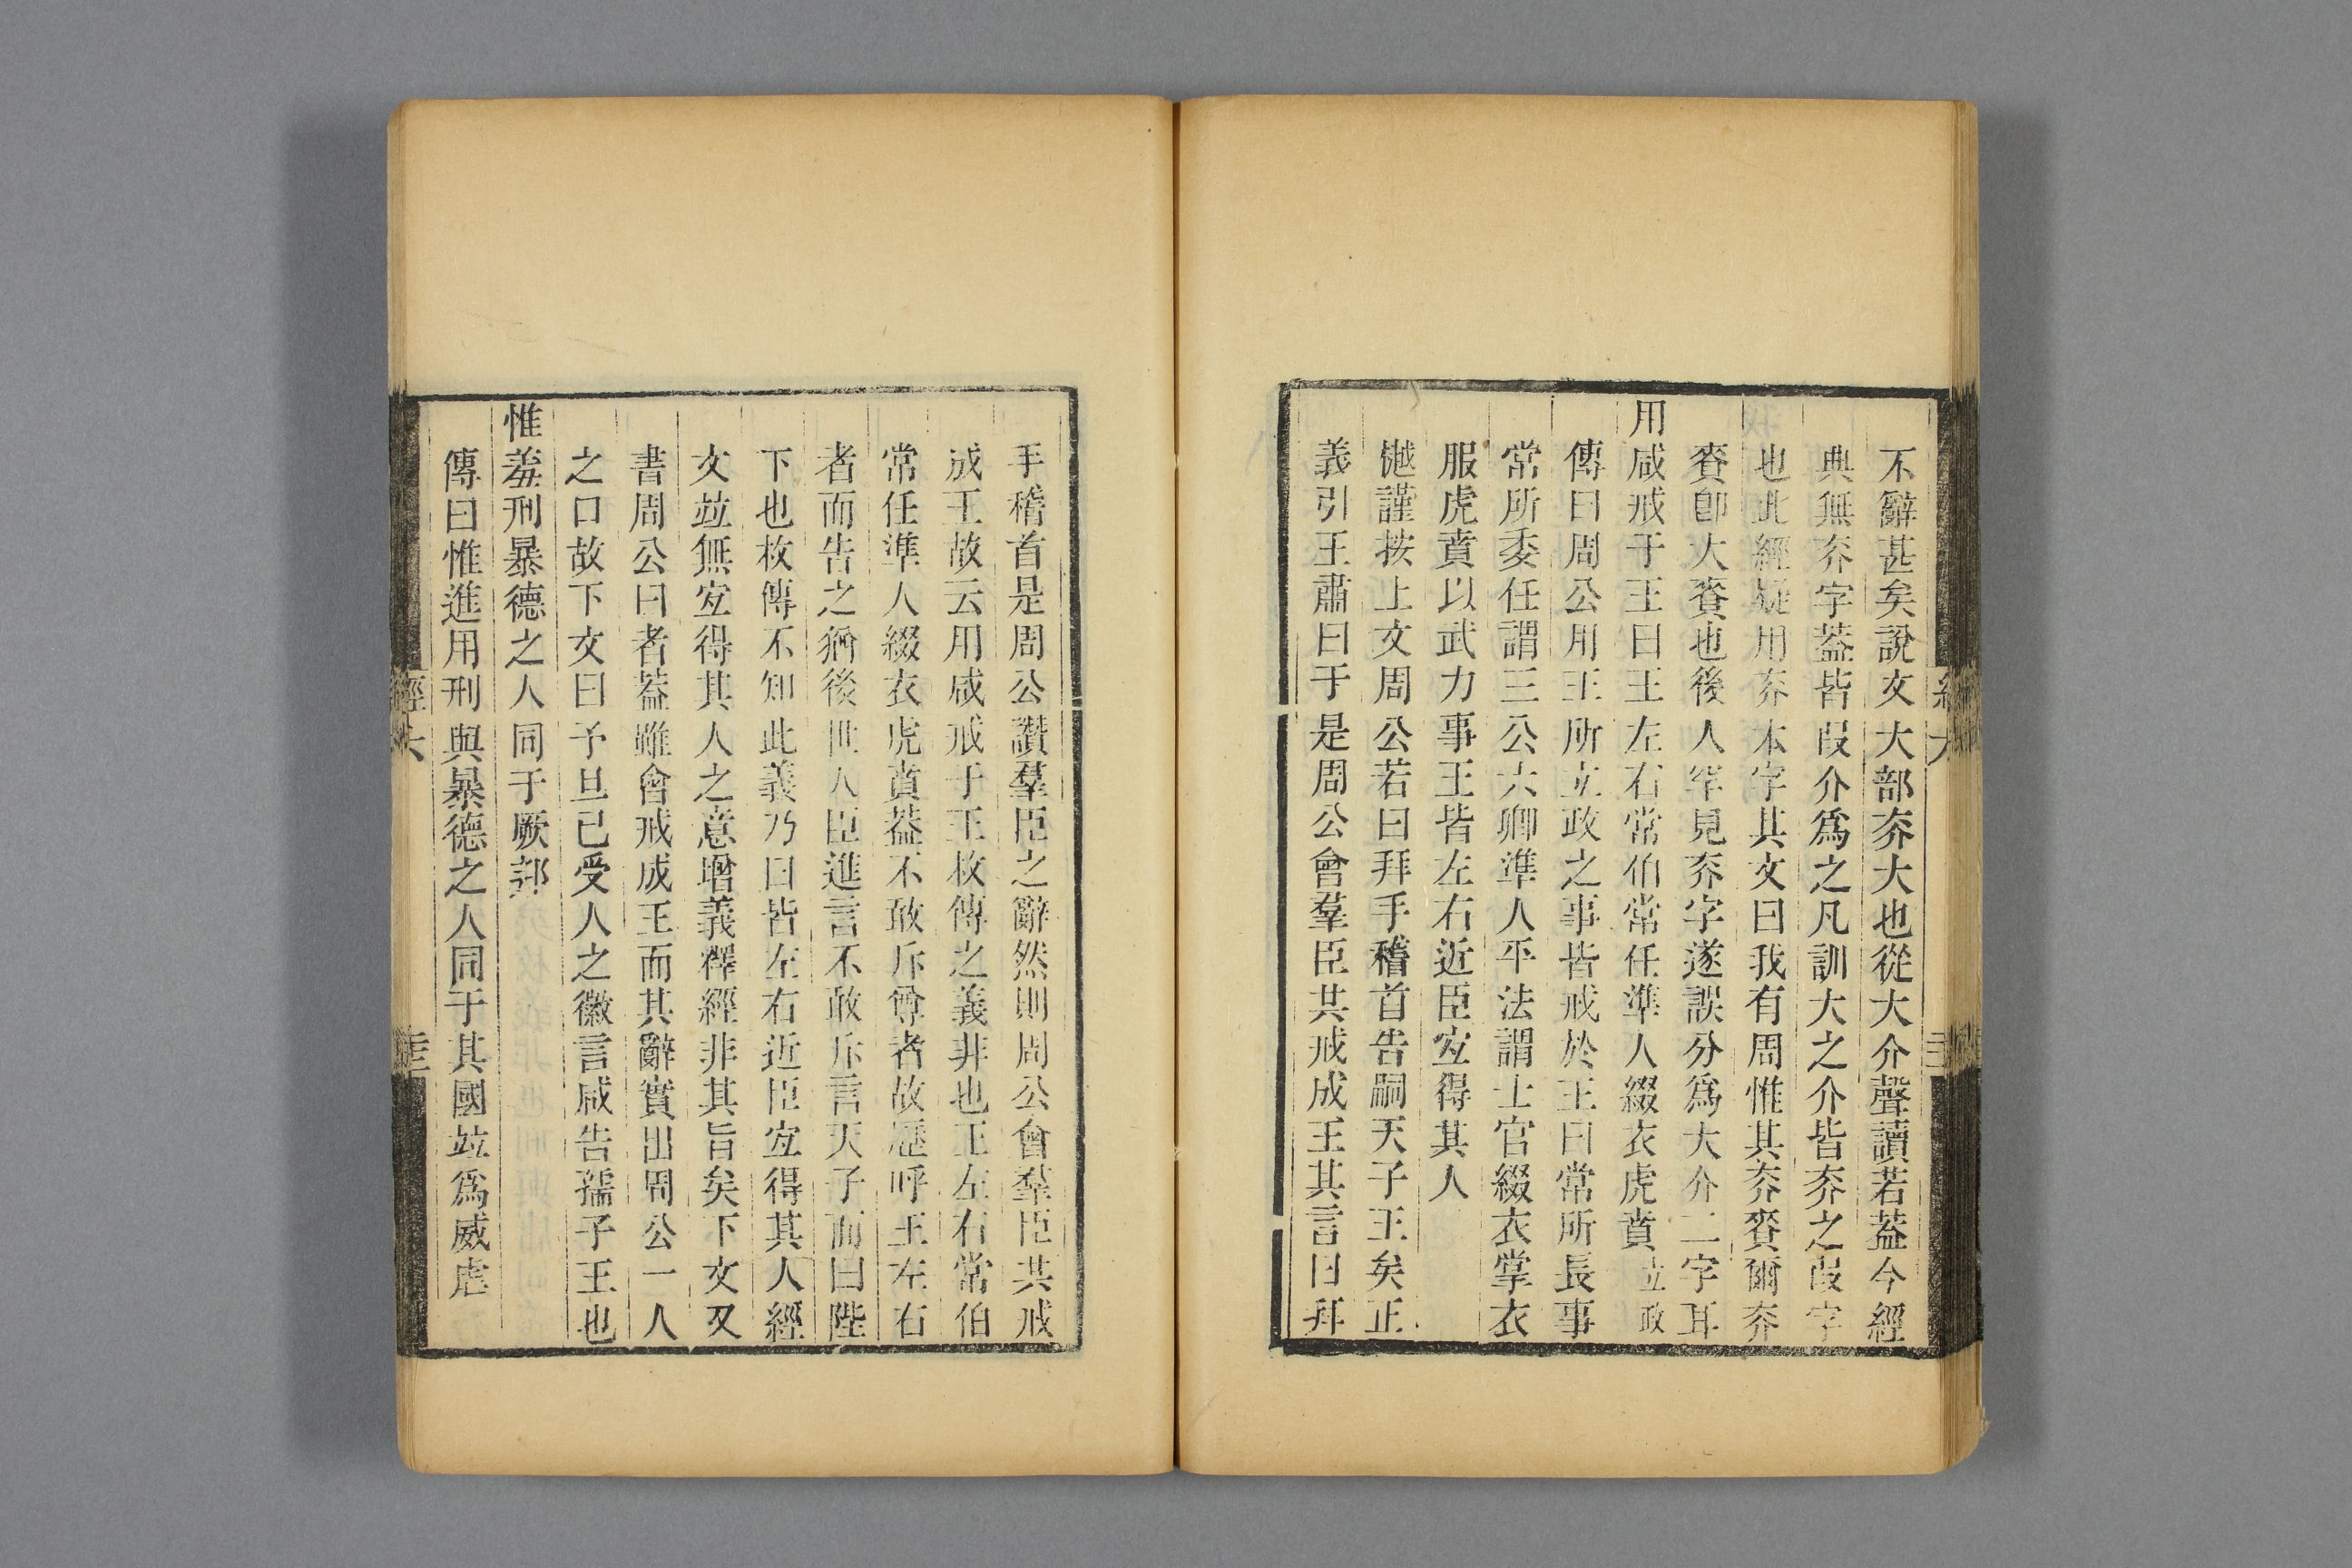 不辭甚矣說文大部夰大也從大介聲讀若葢今經
典無夰字葢皆叚介爲之凡訓大之介皆夰之叚字
也此經疑用夰本字其文曰我有周惟其夰賚爾夰
賚卽大賚也後人罕見夰字遂誤分爲大介二字耳
用咸戒于王曰王左右常伯常任準人綴衣虎賁立政
傳曰周公用王所立政之事皆戒於王曰常所長事
常所委任謂三公六卿準人平法謂士官綴衣掌衣
服虎賁以武力事王皆左右近臣宐得其人
樾謹按上文周公若曰拜手稽首告嗣天子王矣正
義引王肅曰于是周公會羣臣共戒成王其言曰拜
手稽首是周公讚羣臣之辭然則周公會羣臣共戒
成王故云用咸戒于王枚傳之義非也王左右常伯
常任準人綴衣虎賁葢不敢斥尊者故歷呼王左右
者而告之猶後世人臣進言不敢斥言天子而曰陛
下也枚傳不知此義乃曰皆左右近臣宐得其人經
文竝無宐得其人之意增義釋經非其旨矣下文又
書周公曰者葢雖會戒成王而其辭實出周公一人
之口故下文曰予旦已受人之徽言咸告孺子王也
惟羞刑暴德之人同于厥邦
傳曰惟進用刑與暴德之人同于其國竝爲威虐
經六